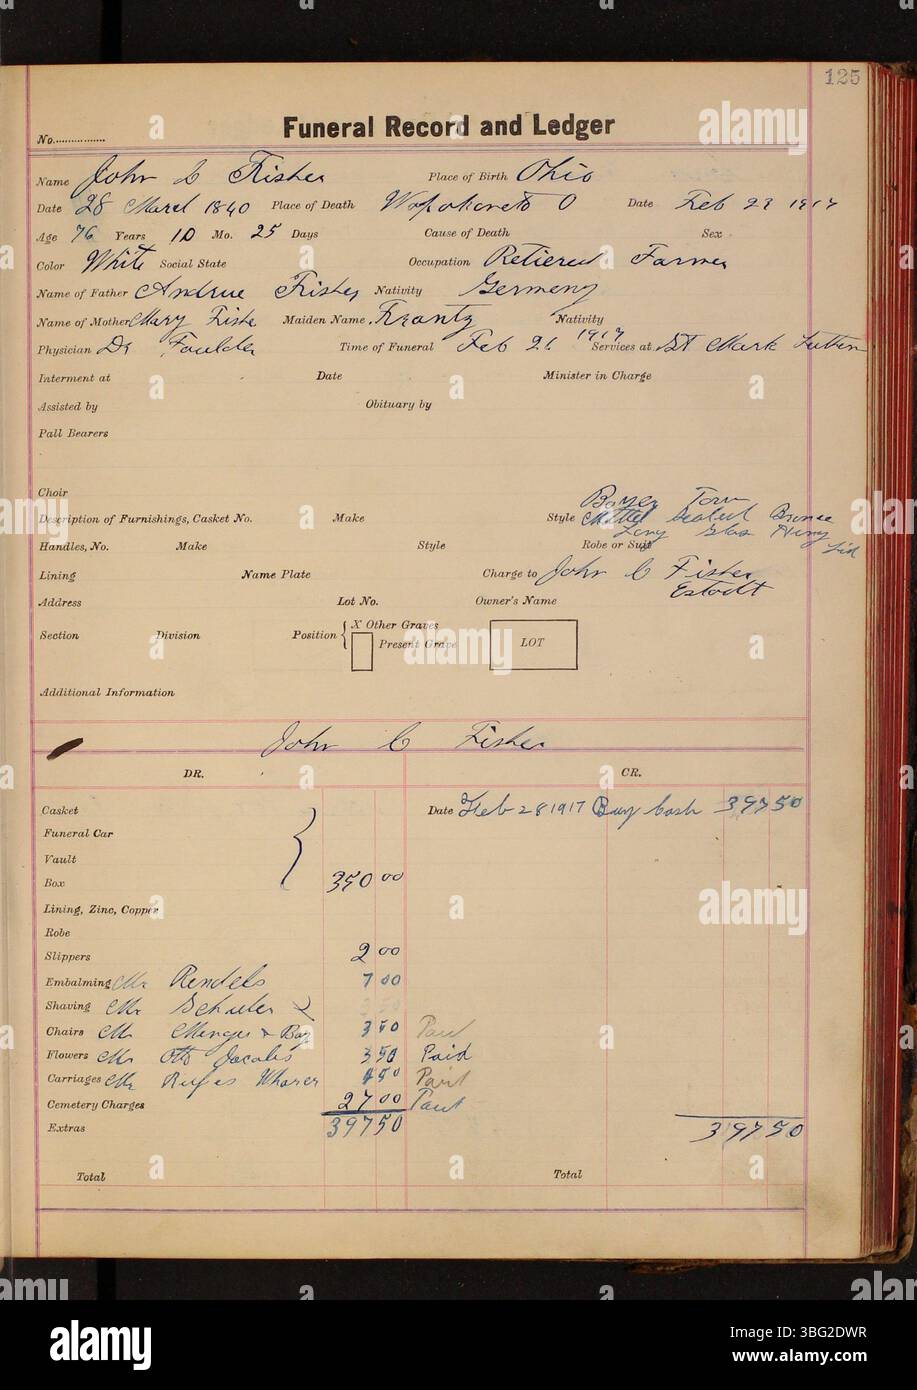 125
No.
Funeral Record and Ledger
Name John C Fisher Place of Birth Ohio
Date 28 March 1840 Place of Death Wapokoneto O Date Feb 23 1917
Age 76 Years 10 Mo. 25 Days Cause of Death Sex
Color White Social State Occupation Retiered Farmer
Name of Father Andrue Fisher Nativity Germeny
Name of Mother Mary Fishe Maiden Name Krantz Nativity
Physician Dr Faulder Time of Funeral Feb 26 1917 Services at St Mark Luthern
Interment at Date Minister in Charge
Assisted by Obituary by
Pall Bearers
Choir
Boyer Town
Description of Furnishings, Casket No. Make Style Mettel Sealed Bronce
Long Glas Hevy Lid
Handles, No. Make Style Robe or Suit
Lining Name Plate Charge to John C Fisher
Estaett
Address Lot No. Owner's Name
Section Division Position X Other Graves
Present Grave
LOT
Additional Information
John C Fisher
DR. CR.
Casket Date Feb 28 1917 By Cash 397 50
Funeral Car
Vault
Box 350 00
Lining, Zinc, Copper
Robe
Slippers 2 00
Embalming Mr Rendels 7 00
Shaving Mr Schuler
Chairs Mr Menges & Bay 3 50 Paid
Flowers Mr Otto Jacobs 3 50 Paid
Carriages Mr Rufes Wharer 4 50 Paid
Cemetery Charges 27 00 Paid
Extras 397 50 397 50
Total Total
alamy
Image ID: 3BG2DWR
www.alamy.com